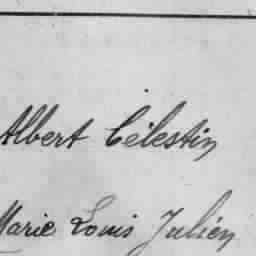 Albert Célestin
Marie Louis Julien